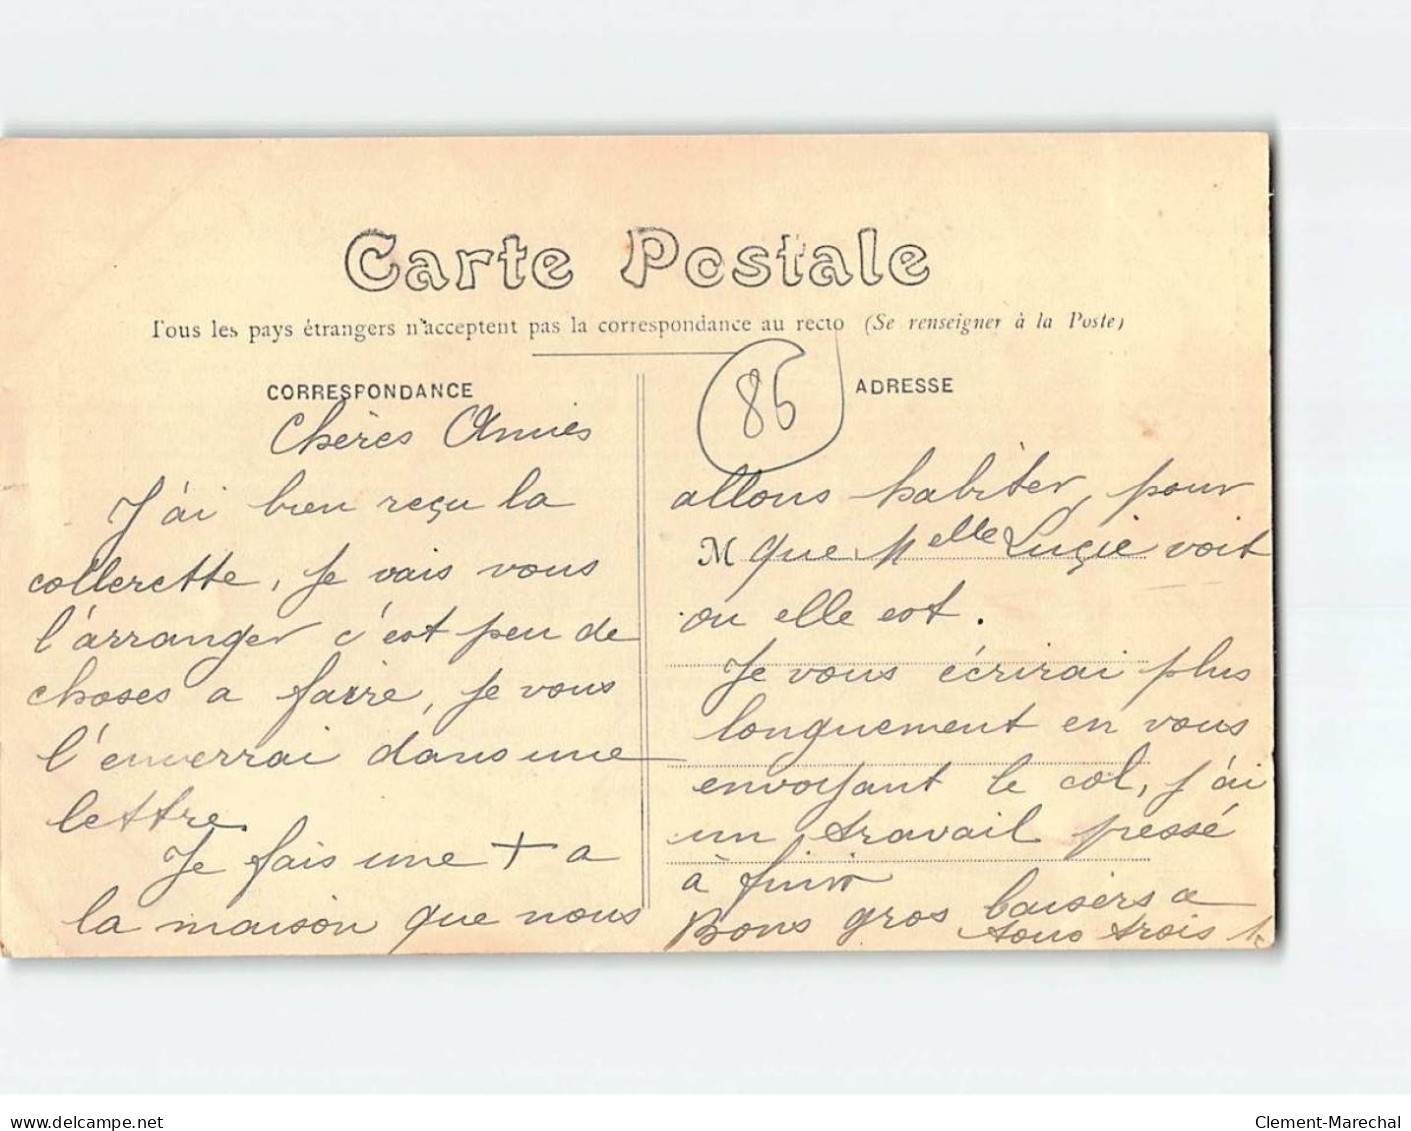 Carte Postale
Tous les pays étrangers n'acceptent pas la correspondance au recto (Se renseigner à la Poste)
CORRESPONDANCE
Chères Amies
J'ai bien reçu la
collerette, je vais vous
l'arranger c'est peu de
choses a faire, je vous
l'enverrai dans une
lettre.
Je fais une + a
la maison que nous
86
ADRESSE
allons habiter, pour
M que Melle Luçie voit
ou elle est.
Je vous écrirai plus
longuement en vous
envoyant le col, j'ai
un travail pressé
à finir
Bons gros baisers a
tous trois
delcampe.net
Clement-Marechal